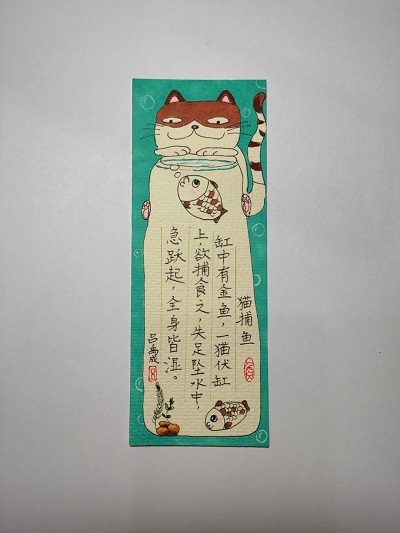 猫捕鱼
缸中有金鱼，一猫伏缸
上，欲捕食之，失足坠水中，
急跃起，全身皆湿。